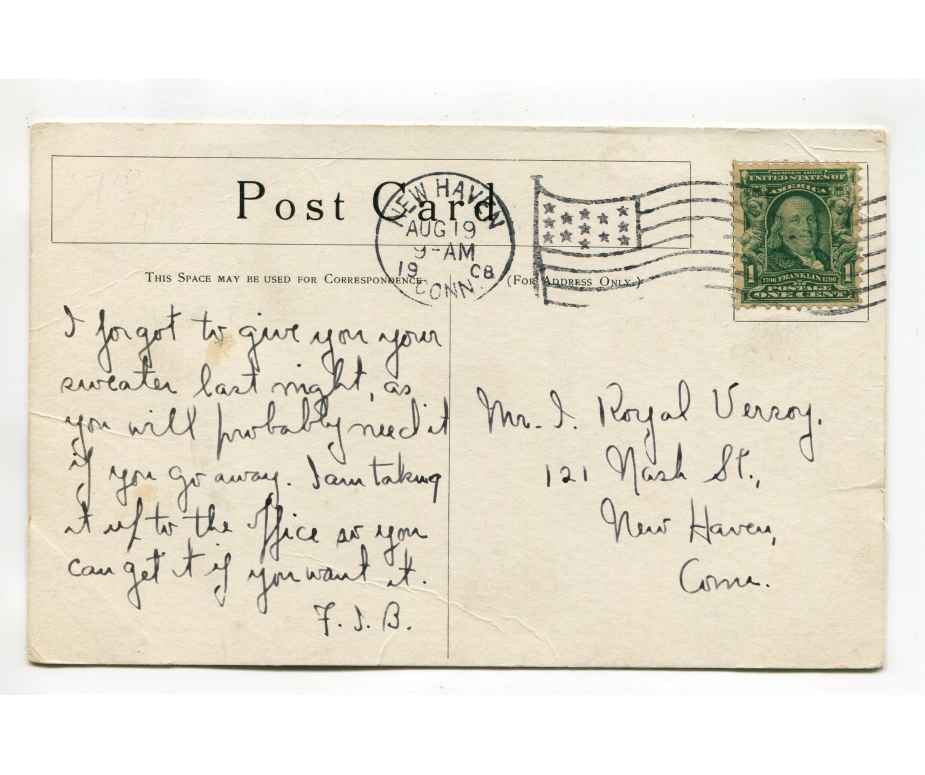 Post Card
NEW HAVEN
AUG 19
9-AM
19 08
CONN.
UNITED STATES OF
AMERICA
1 1
FRANKLIN
POSTAGE
ONE CENT
THIS SPACE MAY BE USED FOR CORRESPONDENCE
(FOR ADDRESS ONLY.)
I forgot to give you your
sweater last night, as
you will probably need it
if you go away. I am taking
it up to the office so you
can get it if you want it.
F. J. B.
Mr. J. Royal Verroy,
121 Nash St.,
New Haven,
Conn.